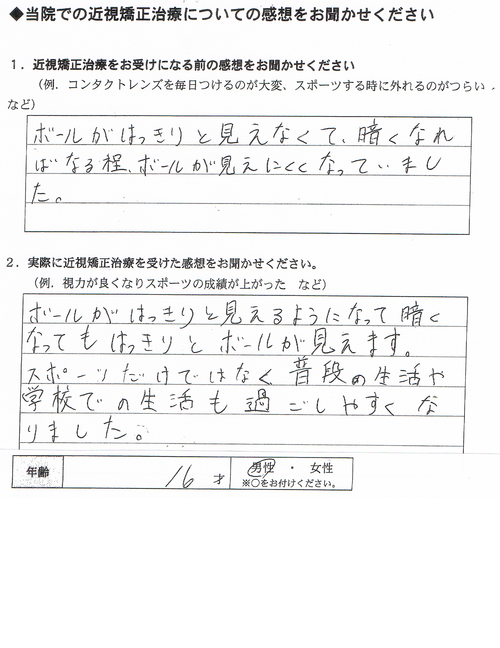 ◆当院での近視矯正治療についての感想をお聞かせください
1．近視矯正治療をお受けになる前の感想をお聞かせください
（例．コンタクトレンズを毎日つけるのが大変、スポーツする時に外れるのがつらい．
など）
ボールがはっきりと見えなくて、暗くなれ
ばなる程、ボールが見えにくくなっていまし
た。
2．実際に近視矯正治療を受けた感想をお聞かせください。
（例．視力が良くなりスポーツの成績が上がった　など）
ボールがはっきりと見えるようになって暗く
なってもはっきりとボールが見えます。
スポーツだけではなく普段の生活や
学校での生活も過ごしやすくな
りました。
年齢　16 才　男性 ・ 女性
※〇をお付けください。